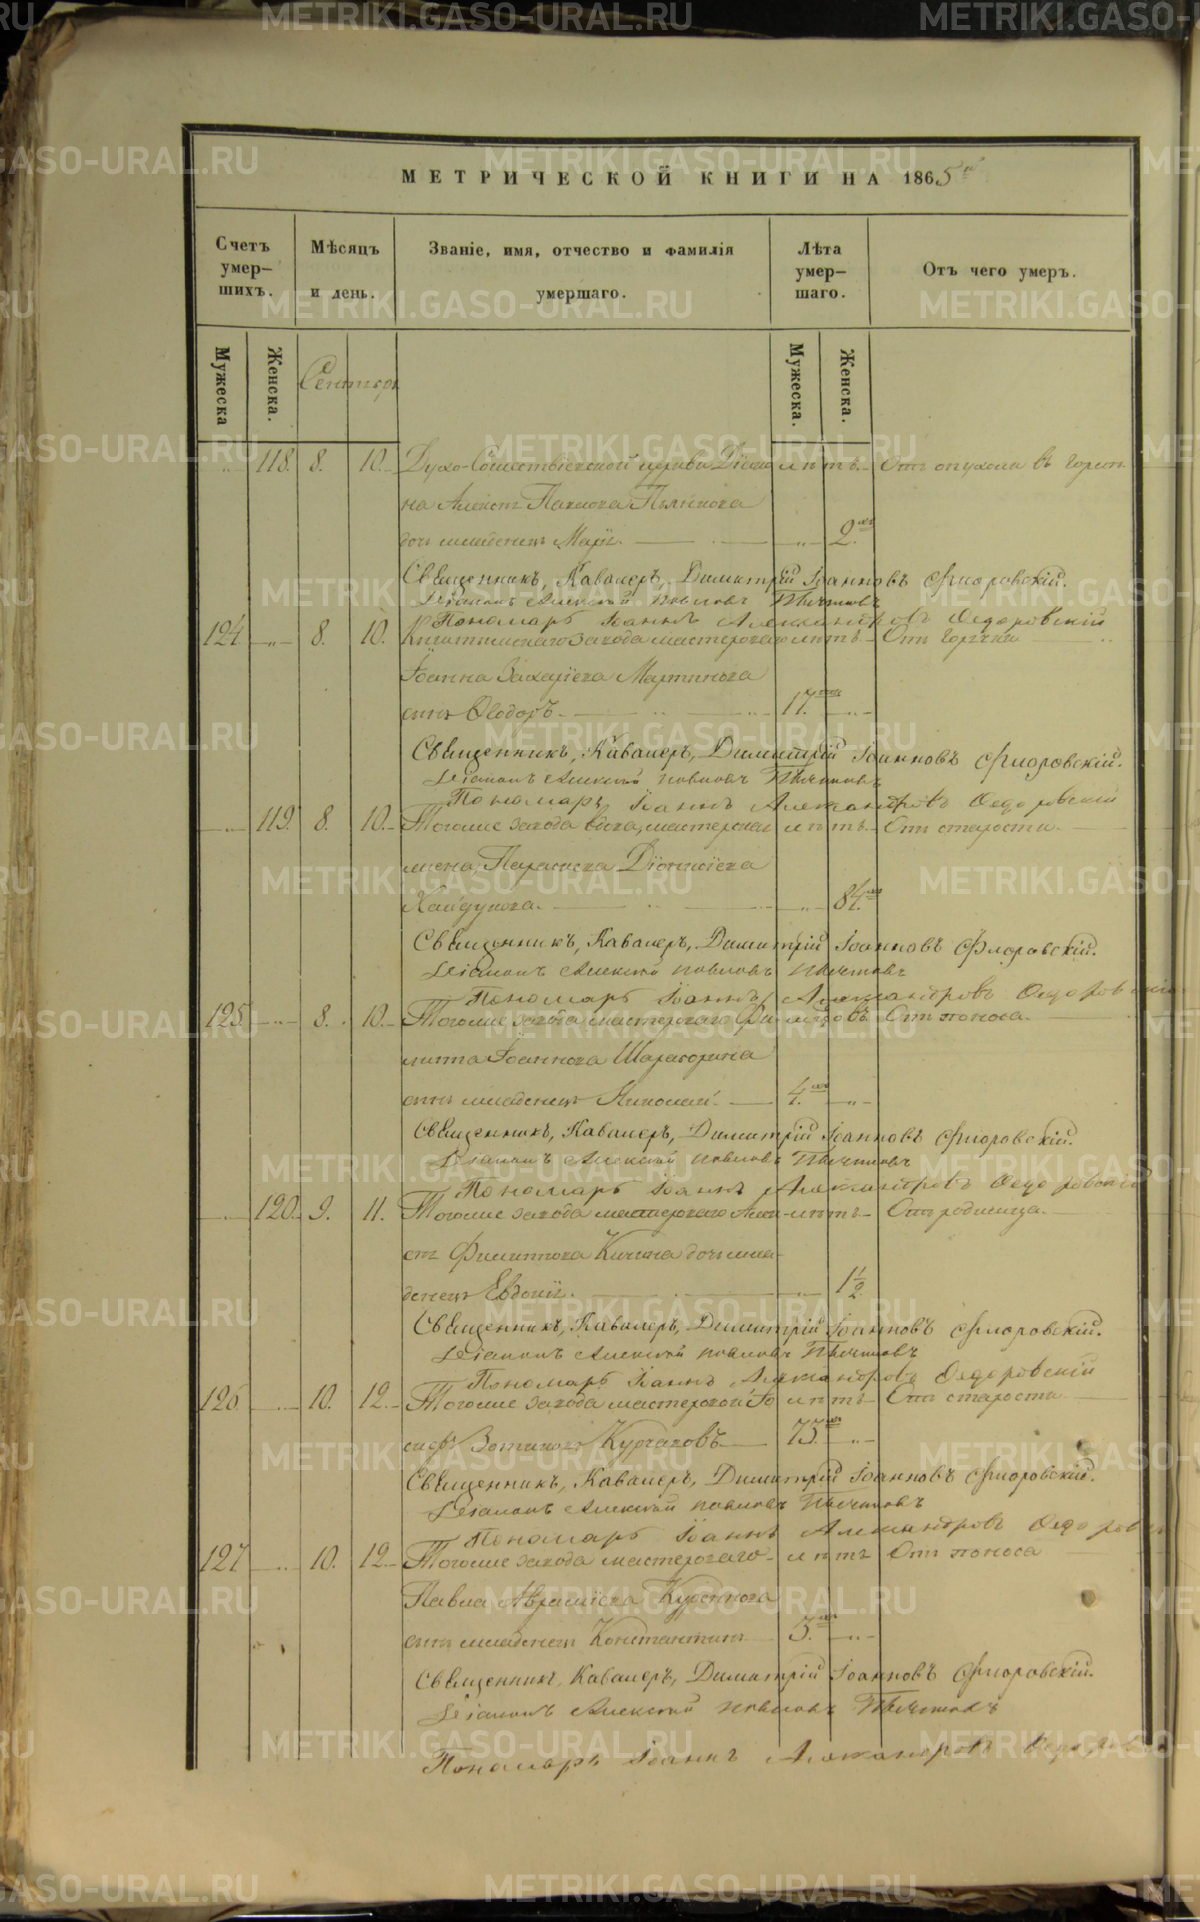 МЕТРИЧЕСКОЙ КНИГИ НА 1865й
Счетъ умер-шихъ.
Мѣсяцъ и день.
Званіе, имя, отчество и фамилія умершаго.
Лѣта умер-шаго.
Отъ чего умеръ.
Мужеска
Женска.
Сентябр
Мужеска.
Женска.
118. 8. 10. Духо-Сошествіевской церкви Діако лѣтъ. Отъ опухоли въ горлѣ
на Алексѣя Павлова
дочь младенецъ Марія. 2.
Священникъ, Кавалеръ, Димитрій Іоанновъ Флоровскій.
Діаконъ Алексѣй Павловъ
Пономарь Іоаннъ Александровъ Ѳедоровскій
124 8. 10. Кыштымскаго завода мастероваго лѣтъ. Отъ горячки
Іоанна Захаріева Мартинова
сынъ Ѳеодоръ. 17.
Священникъ, Кавалеръ, Димитрій Іоанновъ Флоровскій.
Діаконъ Алексѣй Павловъ
Пономарь Іоаннъ Александровъ Ѳедоровскій
119. 8. 10. Тогоже завода вдова, мастерская лѣтъ. Отъ старости.
жена, Параскева Діонисіева
Хайдукова. 84.
Священникъ, Кавалеръ, Димитрій Іоанновъ Флоровскій.
Діаконъ Алексѣй Павловъ
Пономарь Іоаннъ Александровъ Ѳедоровскій
125. 8. 10. Тогоже завода мастероваго Фи- Отъ поноса.
липпа Іоаннова
сынъ младенецъ Николай. 4.
Священникъ, Кавалеръ, Димитрій Іоанновъ Флоровскій.
Діаконъ Алексѣй Павловъ
Пономарь Іоаннъ Александровъ Ѳедоровскій
120. 9. 11. Тогоже завода мастероваго лѣтъ. Отъ родимца.
Филиппова Кичина дочь мла-
денецъ Евдокія. 1½
Священникъ, Кавалеръ, Димитрій Іоанновъ Флоровскій.
Діаконъ Алексѣй Павловъ
Пономарь Іоаннъ Александровъ Ѳедоровскій
126 10. 12. Тогоже завода мастеровой Іо лѣтъ Отъ старости
сифъ Курчавовъ 73.
Священникъ, Кавалеръ, Димитрій Іоанновъ Флоровскій.
Діаконъ Алексѣй Павловъ
Пономарь Іоаннъ Александровъ
127 10. 12. Тогоже завода мастероваго лѣтъ Отъ поноса
Павла Авраміева
сынъ младенецъ Константинъ 3.
Священникъ, Кавалеръ, Димитрій Іоанновъ Флоровскій.
Діаконъ Алексѣй Павловъ
Пономарь Іоаннъ Александровъ
METRIKI.GASO-URAL.RU